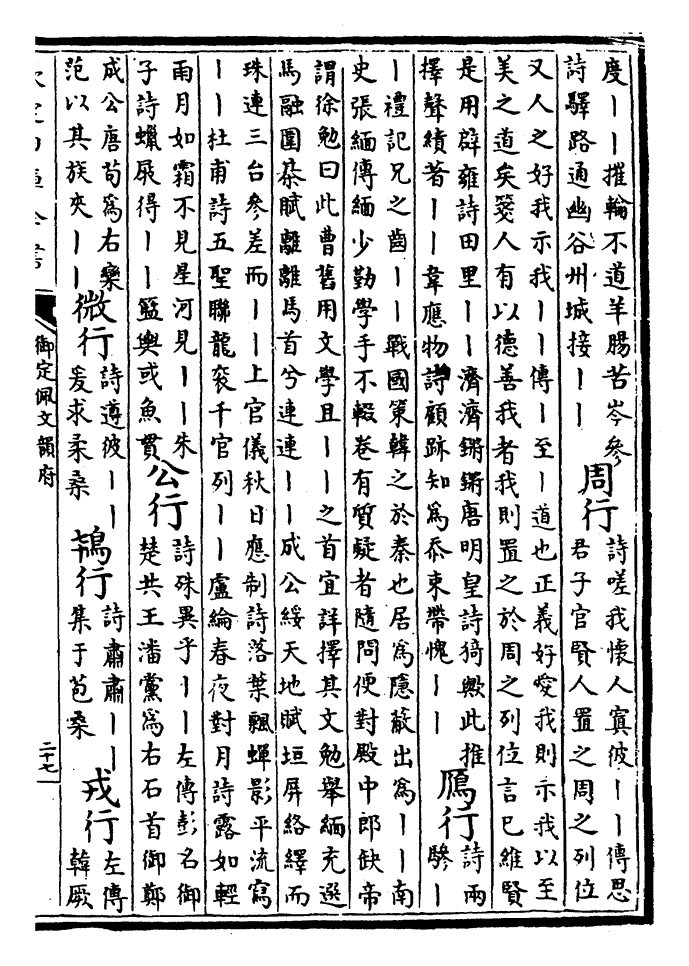 度丨丨摧輪不道羊腸苦岑參
詩驛路通幽谷州城接丨丨
周行
詩嗟我懷人寘彼丨丨傳思
君子官賢人置之周之列位
又人之好我示我丨丨傳丨至丨道也正義好愛我則示我以至
美之道矣箋人有以德善我者我則置之於周之列位言已維賢
是用辟雍詩田里丨丨濟濟鏘鏘唐明皇詩猗歟此推
擇聲績著丨丨韋應物詩顧跡知爲忝束帶愧丨丨
鴈行
詩兩
驂丨
丨禮記兄之齒丨丨戰國策韓之於秦也居爲隱蔽出爲丨丨南
史張緬傳緬少勤學手不輟卷有質疑者隨問便對殿中郎缺帝
謂徐勉曰此曹舊用文學且丨丨之首宜詳擇其文勉舉緬充選
馬融圍棊賦離離馬首兮連連丨丨成公綏天地賦垣屏絡繹而
珠連三台參差而丨丨上官儀秋日應制詩落葉飄蟬影平流寫
丨丨杜甫詩五聖聯龍衮千官列丨丨盧綸春夜對月詩露如輕
雨月如霜不見星河見丨丨朱
子詩蠟屐得丨丨籃輿或魚貫
公行
詩殊異乎丨丨左傳彭名御
楚共王潘黨爲右石首御鄭
成公唐茍爲右欒
范以其族夾丨丨
微行
詩遵彼丨丨
爰求柔桑
鴇行
詩肅肅丨丨
集于苞桑
戎行
左傳
韓厥
御定佩文韻府
二十七